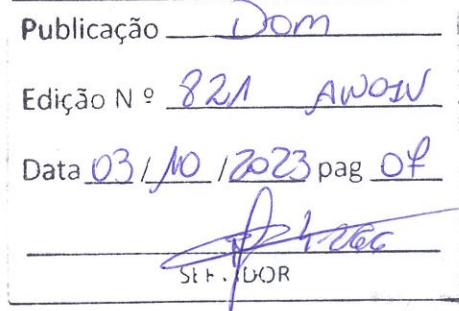 Publicação Dom
Edição Nº 821 ANOIV
Data 03/10/2023 pag 07
SERVIDOR